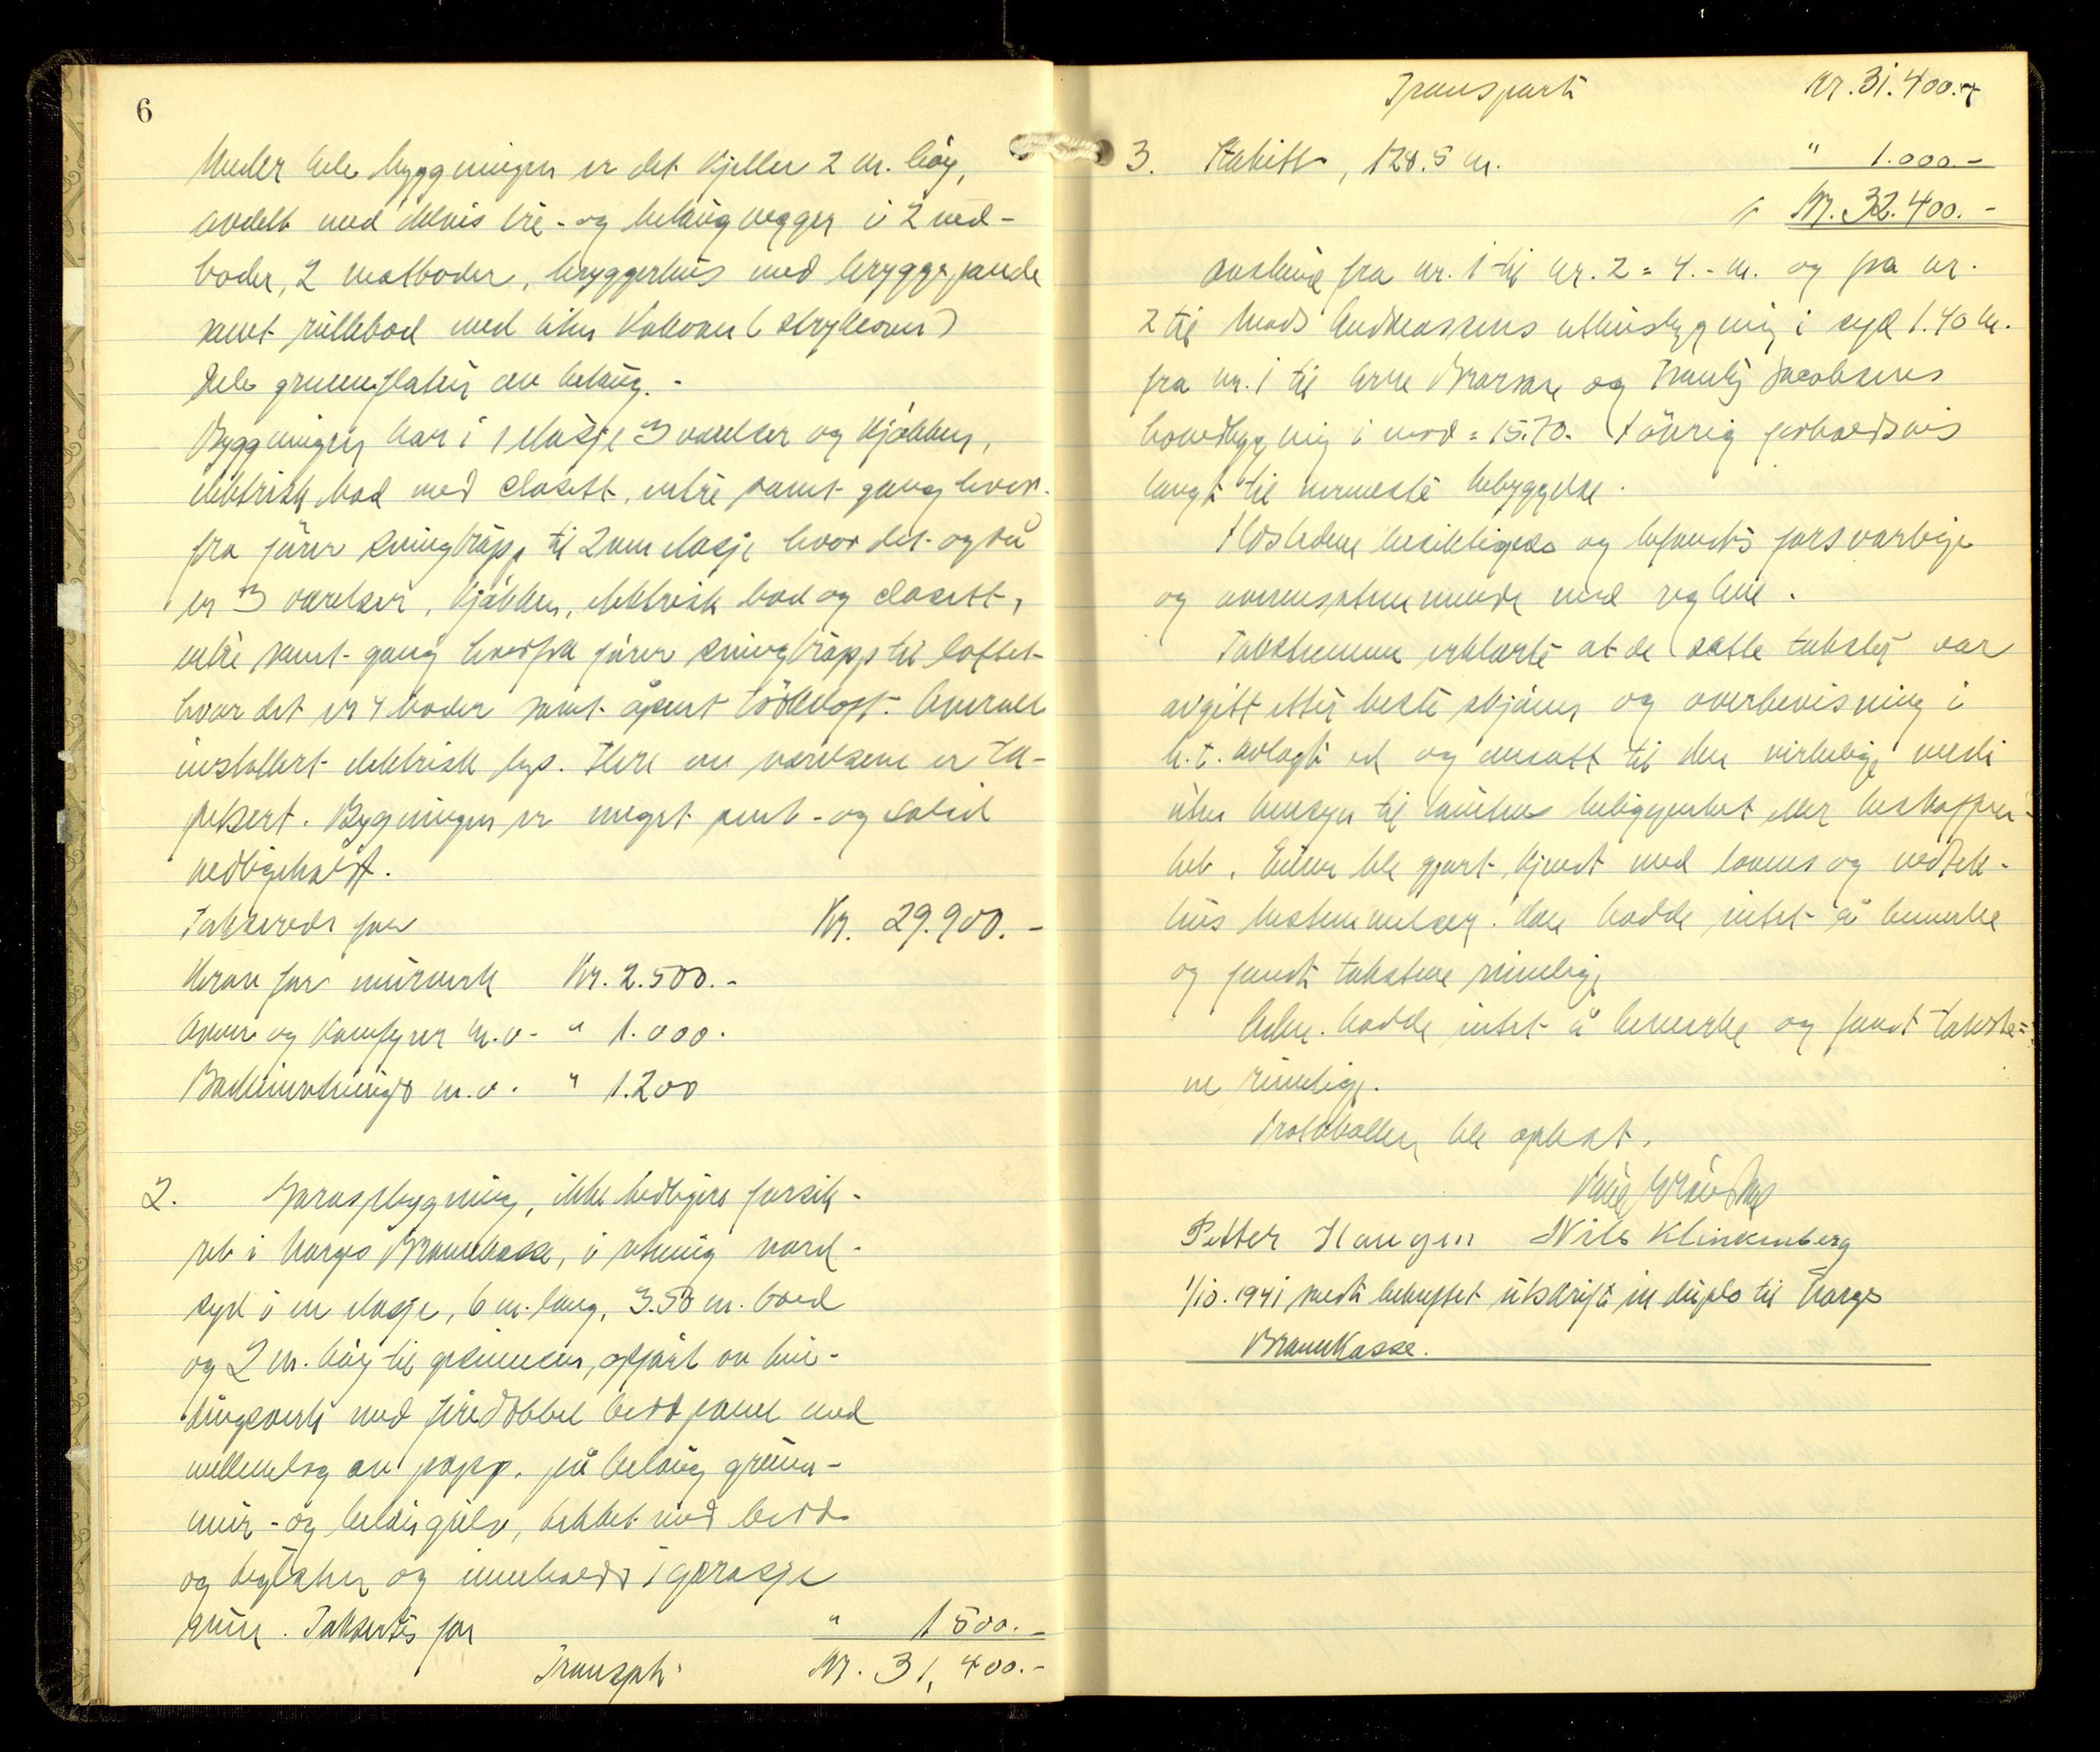 6
Under hele byggningen er det kjeller 2 m. høy,
avdelt med delvis tre- og betongvegger i 2 ved-
boder, 2 matboder, bryggerhus med bryggepande
samt rullebod med liten kakovn (strykeovn)
Hele grunnflaten av betong.-
Byggningen har i 1 etasje 3 værelser og kjøkken,
elektrisk bad med closett, entre samt gang hvor-
fra fører svingtrapp til 2nen etasje hvor det også
er 3 værelser, kjøkken, elektrisk bad og closett,
entre samt gang hvorfra fører svingtrapp til loftet
hvor det er 4 boder samt åpent tørkeloft. Overalt
installert elektrisk lys. Flere av værelsene er ta-
petsert. Bygningen er meget pent- og solid
vedligeholdt.
Takseredes for Kr. 29.900.-
Herav for murverk Kr. 2.500.-
Ovner og Komfyrer m.v. " 1.000.
Badeinretninger m.v. " 1.200
2. Garasjebygning, ikke tidligere forsik-
ret i Norges Brannkasse, i retning nord-
syd i en etasje, 6 m. lang, 3.50 m. bred
og 2 m. høy til gesimsen, opført av bin-
dingsverk med firedobbel bordpanel med
mellemlag av papp, på betong grunn-
mur- og betongulv, tekket med bord
og teglsten og inneholder 1 garasje
rum. Takseredes for " 1500.-
Transport Kr. 31,400.-
Transport Kr. 31.400.-
3. Stakitt, 128.5 m. " 1.000.-
Kr. 32.400.-
Avstand fra nr. 1 til nr. 2 = 4.- m. og fra nr.
2 til Mads Andreassens uthusbygning i syd 1.40 m.
fra nr. 1 til Arne Brorsen og Jacobsens
hovedbygning i nord = 15.70. Forøvrig forholdsvis
langt til nærmeste bebyggelse.
Ildstedene besiktigedes og befandtes forsvarlige
og overensstemmende med reglene.
Takstmennene erklærte at de satte takster var
avgitt etter beste skjønn og overbevisning i
h.t. avlagt ed og ansatt til den virkelige verdi
uten hensyn til tomtens beliggenhet eller beskaffen-
het. Eieren ble gjort kjent med lovens og vedtek-
tens bestemmelser. Han hadde intet å bemerke
og fandt takstene rimelige
Adm. hadde intet å bemerke og fandt takste-
ne rimelige.
Protokollen ble oplest.
Petter Haugen Nils Klinkenberg
1/10. 1941 sendt bekreftet utskrift in duplo til Norges
Brannkasse.